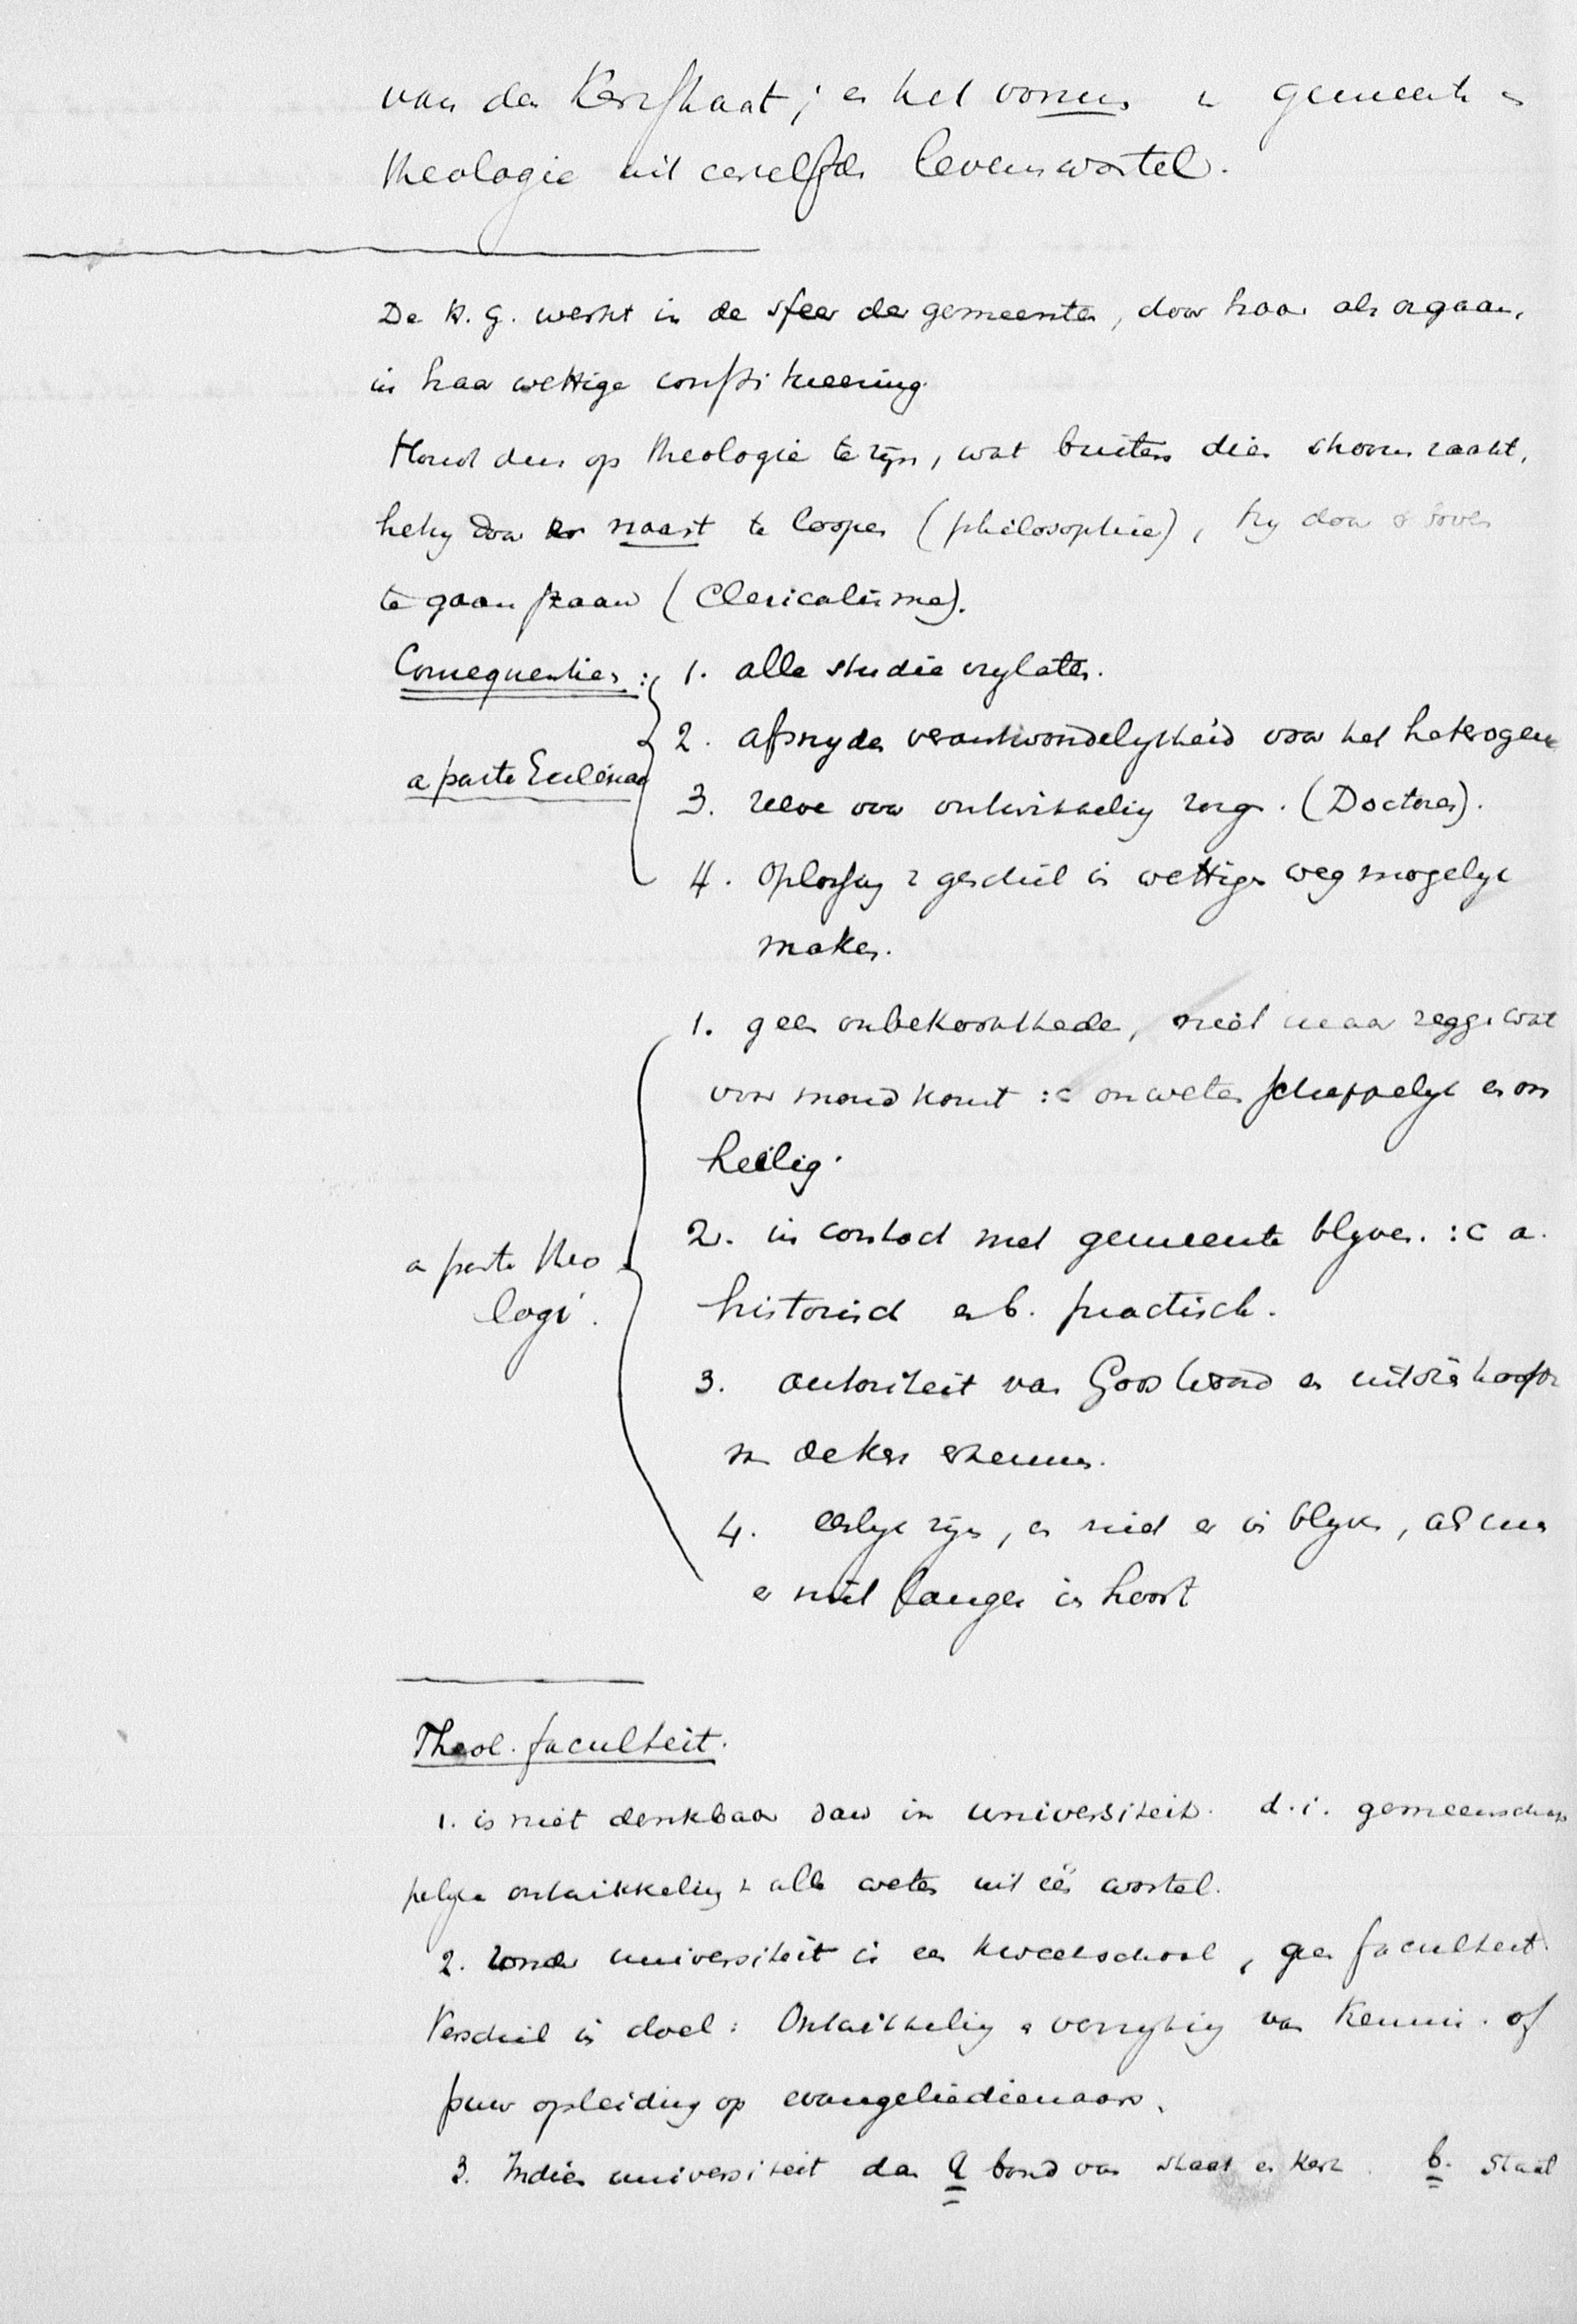 van den Kerkstaat; en het vormen v gemeente en
theologie uit eenzelfde levenswortel.
De H. G. werkt in de sfeer der gemeente, door haar als orgaan,
in haar wettige constitueering.
Houd dus op theologie te zijn, wat buiten die stroom raakt,
hetzy door er naast te loopen (philosophie), hzy door er boven
te gaan staan (Clericalisme).
Consequenties: 1. alle studie vrylaten.
2. afsnyden verantwoordelykheid voor het heterogene
a parte Ecclesiae
3. zelve voor ontwikkeling zorgen. (Doctores).
4. Oplossing v geschil in wettigen weg mogelyk
maken.
1. geen onbekooktheden, niet maar zeggen wat
voor mond komt :c onwetenschappelyk en on
heilig.
2. in contact met gemeente blyven. :c a.
a parte theo
historisch en b. practisch.
logi.
3. autoriteit van Gods Woord en uit dien hoofde
v de Kerk erkennen.
4. eerlyk zyn, en niet er in blyven, als men
er niet langer in hoort
Theol. faculteit.
1. is niet denkbaar dan in universiteit. d.i. gemeenschap
pelyke ontwikkeling v alle weten uit één wortel.
2. zonder universiteit is een kweekschool, geen faculteit.
Verschil in doel: Ontwikkeling en verryking van Kennis. of
puur opleiding op evangeliedienaars.
3. Indien universiteit dan a band van staat en Kerk. b. Staat